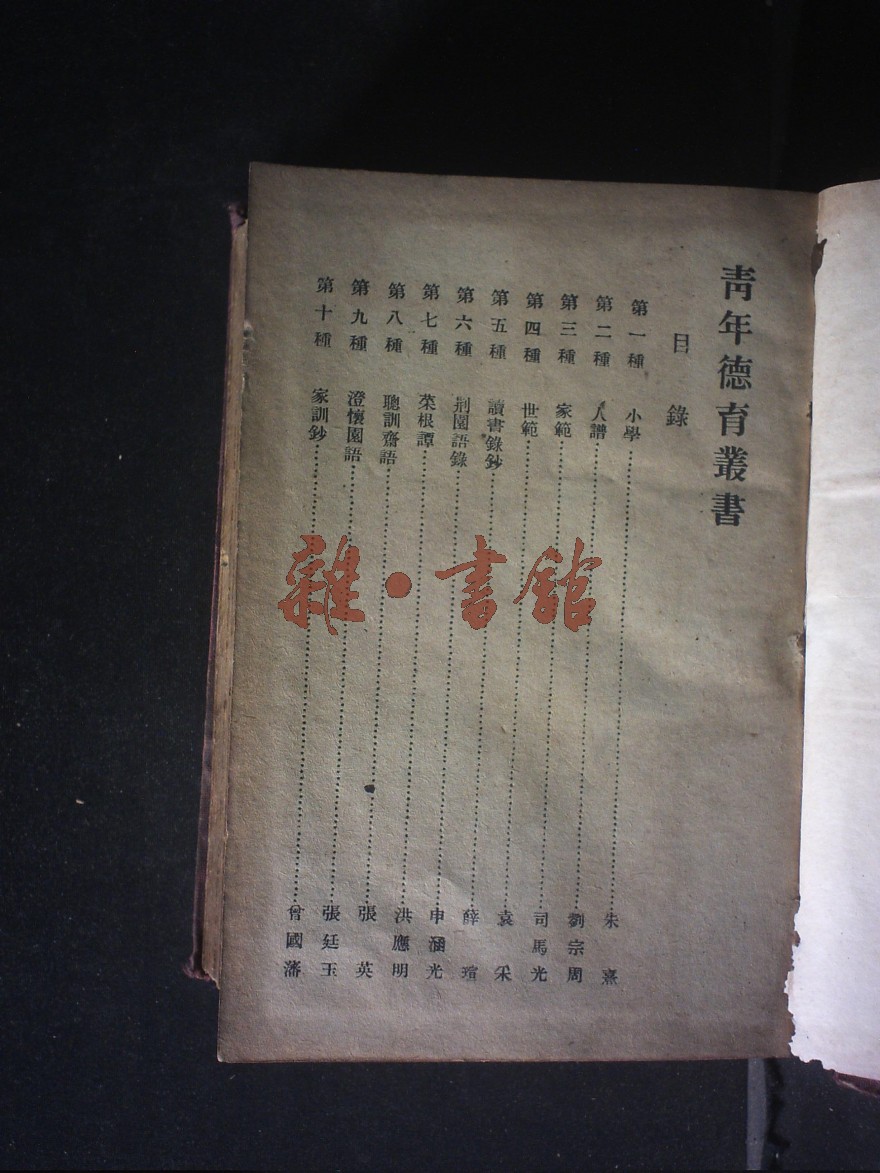 青年德育叢書
目錄
第一種 小學 朱熹
第二種 人譜 劉宗周
第三種 家範 司馬光
第四種 世範 袁采
第五種 讀書錄鈔 薛瑄
第六種 荆園語錄 申涵光
第七種 菜根譚 洪應明
第八種 聰訓齋語 張英
第九種 澄懷園語 張廷玉
第十種 家訓鈔 曾國藩
雜·書館